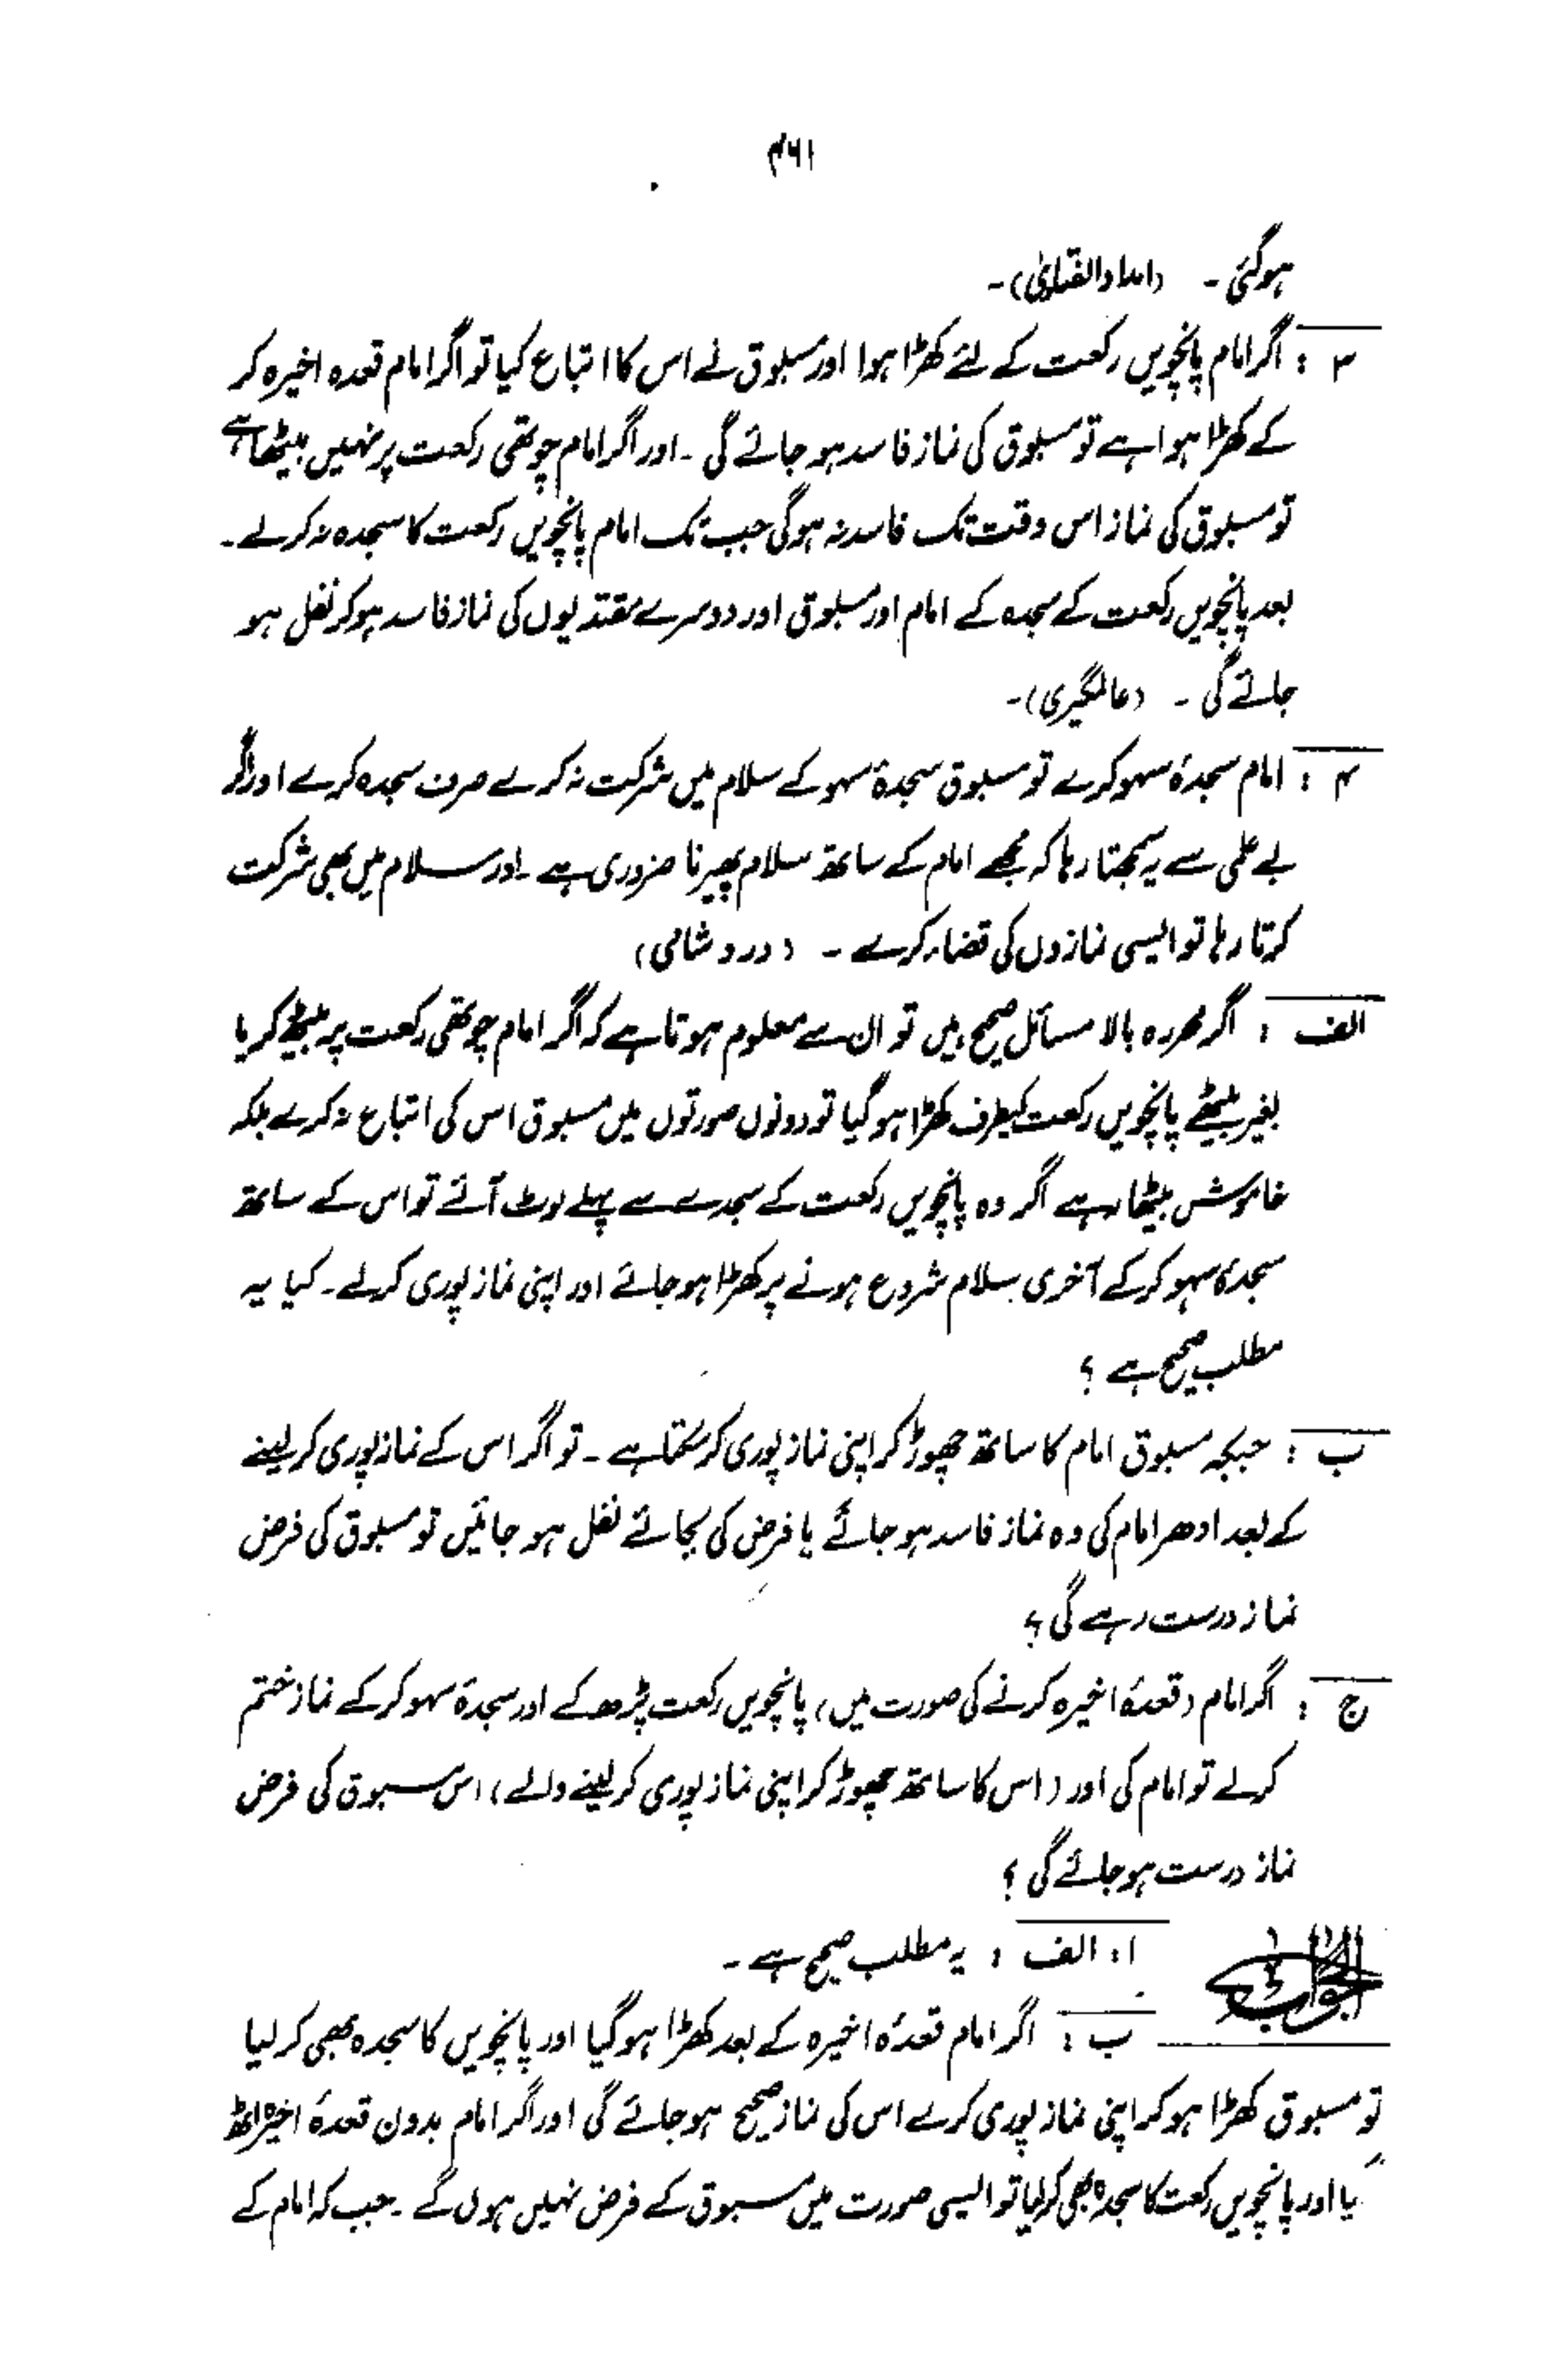 ۴۶۱
ہوگئی ۔ (امداد الفتاویٰ)۔
۳ : اگر امام پانچویں رکعت کے لئے کھڑا ہوا اور مسبوق نے اس کا اتباع کیا تو اگر امام قعدہ اخیرہ کر
کے کھڑا ہوا ہے تو مسبوق کی نماز فاسد ہو جائے گی ۔ اور اگر امام چوتھی رکعت پر نہیں بیٹھا ہے
تو مسبوق کی نماز اس وقت تک فاسد نہ ہوگی جب تک امام پانچویں رکعت کا سجدہ نہ کرلے ۔
بعد پانچویں رکعت کے سجدہ کے امام اور مسبوق اور دوسرے مقتدیوں کی نماز فاسد ہو کر نفل ہو
جائے گی ۔ (عالمگیری)۔
۴ : امام سجدۂ سہو کرے تو مسبوق سجدۂ سہو کے سلام میں شرکت نہ کرے صرف سجدہ کرے اور اگر
بے علمی سے یہ سمجھتا رہا کہ مجھے امام کے ساتھ سلام پھیرنا ضروری ہے اور سلام میں بھی شرکت
کرتا رہا تو ایسی نمازوں کی قضاء کرے ۔ (درد شامی)
الف : اگر محررہ بالا مسائل صحیح ہیں تو ان سے معلوم ہوتا ہے کہ اگر امام چوتھی رکعت پر بیٹھ کر یا
بغیر بیٹھے پانچویں رکعت کیطرف کھڑا ہو گیا تو دونوں صورتوں میں مسبوق اس کی اتباع نہ کرے بلکہ
خاموش بیٹھا رہے اگر وہ پانچویں رکعت کے سجدے سے پہلے لوٹ آئے تو اس کے ساتھ
سجدہ سہو کر کے آخری سلام شروع ہونے پر کھڑا ہو جائے اور اپنی نماز پوری کرلے ۔ کیا یہ
مطلب صحیح ہے ؟
ب : جبکہ مسبوق امام کا ساتھ چھوڑ کر اپنی نماز پوری کر سکتا ہے ۔ تو اگر اس کے نماز پوری کر لینے
کے بعد ادھر امام کی وہ نماز فاسد ہو جائے یا فرض کی بجائے نفل ہو جائیں تو مسبوق کی فرض
نماز درست رہے گی ؟
ج : اگر امام (قعدۂ اخیرہ کرنے کی صورت میں) پانچویں رکعت پڑھ کے اور سجدۂ سہو کر کے نماز ختم
کرلے تو امام کی اور (اس کا ساتھ چھوڑ کر اپنی نماز پوری کر لینے والے) اس مسبوق کی فرض
نماز درست ہو جائے گی ؟
الجواب ۱ : الف : یہ مطلب صحیح ہے ۔
ب : اگر امام قعدۂ اخیرہ کے بعد کھڑا ہو گیا اور پانچویں کا سجدہ بھی کر لیا
تو مسبوق کھڑا ہو کر اپنی نماز پوری کرے اس کی نماز صحیح ہو جائے گی اور اگر امام بدون قعدۂ اخیرہ اٹھ
گیا اور پانچویں رکعت کا سجدہ بھی کر لیا تو ایسی صورت میں مسبوق کے فرض نہیں ہوں گے ۔ جب کہ امام کے